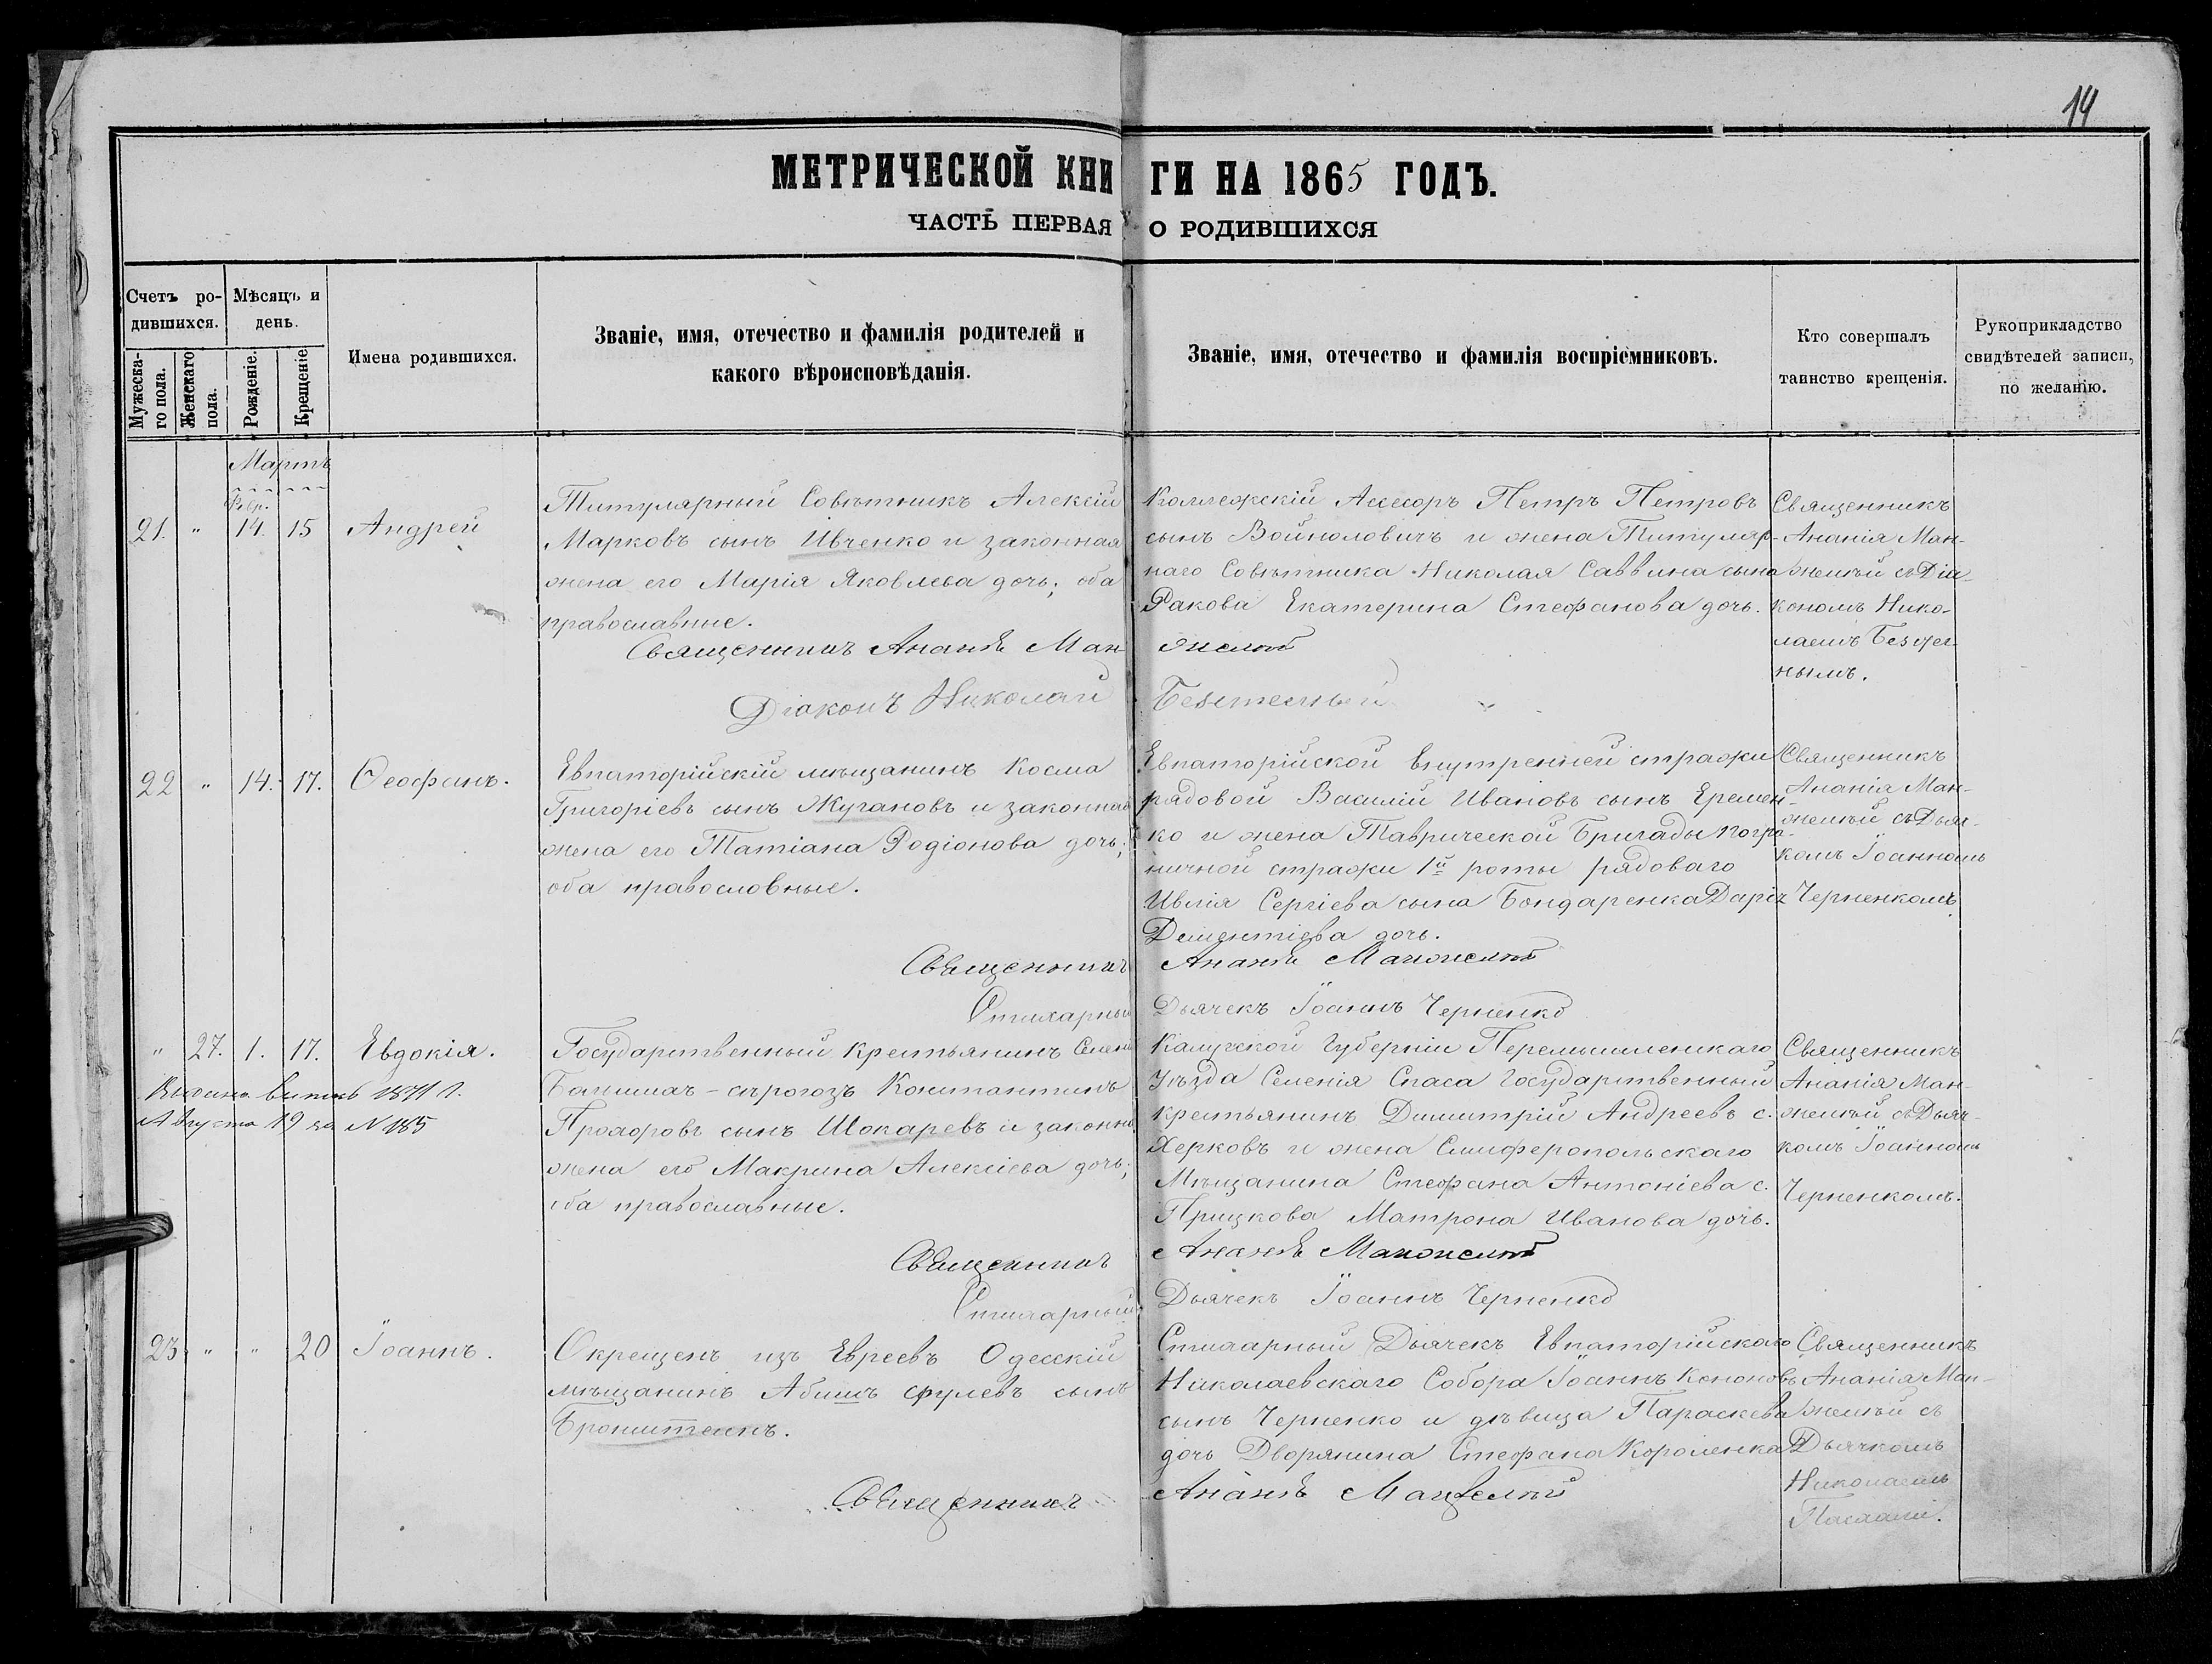 14
МЕТРИЧЕСКОЙ КНИГИ НА 1865 ГОДЪ.
ЧАСТЬ ПЕРВАЯ О РОДИВШИХСЯ
Счетъ ро-
дившихся.
Мужеска-
го пола.
Женскаго
пола.
Мѣсяцъ и
день.
Рожденіе.
Крещеніе
Имена родившихся.
Званіе, имя, отечество и фамилія родителей и
какого вѣроисповѣданія.
Званіе, имя, отечество и фамилія воспріемниковъ.
Кто совершалъ
таинство крещенія.
Рукоприкладство
свидѣтелей записи,
по желанію.
Мартъ
Февр.
21. " 14. 15 Андрей
Титулярный Совѣтникъ Алексій
Марковъ сынъ Ивченко и законная
жена его Марія Яковлева дочь; оба
православные.
Коллежскій Ассесоръ Петръ Петровъ
сынъ Войнолович и жена Титуляр-
наго Совѣтника Николая Саввина сына
Ракова Екатерина Стефанова дочь.
Священникъ
Ананія Ман-
желѣй съ Діа-
кономъ Нико-
лаемъ
нымъ.
Священникъ Ананія Манжелѣй
Діаконъ Николай
22 " 14. 17. Ѳеофанъ.
Евпаторійскій мѣщанинъ Косма
Григоріевъ сынъ Жугановъ и законная
жена его Татіана Родіонова дочь;
оба православные.
Евпаторійской внутренней стражи
рядовой Василій Ивановъ сынъ Еремен-
ко и жена Таврической Бригады погра-
ничной стражи 1й роты рядоваго
Сергіева сына Бондаренка Дарія
Дементіева дочь.
Священникъ
Ананія Ман-
желѣй съ Дьяч-
комъ Іоанномъ
Черненкомъ
Священникъ Ананія Манжелѣй
Стихарный Дьячекъ Іоаннъ Черненко
" 27. 1. 17. Евдокія.
1871 г.
Августа 19 за N 185
Государственный крестьянинъ Селенія
Константинъ
Прохоровъ сынъ Шокаревъ и законная
жена его Макрина Алексіева дочь;
оба православные.
Калужской Губерніи Перемышленскаго
Уѣзда Селенія Спаса Государственный
крестьянинъ Димитрій Андреевъ с.
Херковъ и жена Симферопольскаго
Мѣщанина Стефана Антоніева с.
Прицкова Матрона Иванова дочь.
Священникъ
Ананія Ман-
желѣй съ Дьяч-
комъ Іоанномъ
Черненкомъ.
Священникъ Ананія Манжелѣй
Стихарный Дьячекъ Іоаннъ Черненко
23 " " 20 Іоаннъ.
Окрещенъ изъ Евреевъ Одесскій
мѣщанинъ Абишъ сынъ
Бронштейнъ.
Стихарный Дьячекъ Евпаторійскаго
Николаевскаго Собора Іоаннъ Кононовъ
сынъ Черненко и дѣвица Параскева
дочь Дворянина Стефана Короленка
Священникъ
Ананія Ман-
желѣй съ
Дьячкомъ
Николаемъ
Священникъ Ананія Манжелѣй